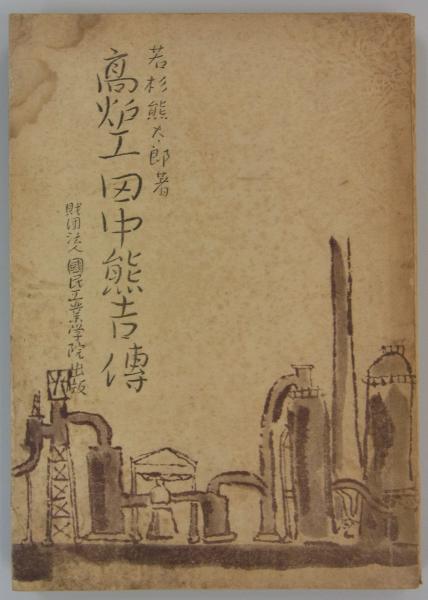 若杉熊太郎著
高炉工田中熊吉傳
財団法人國民工業学院出版